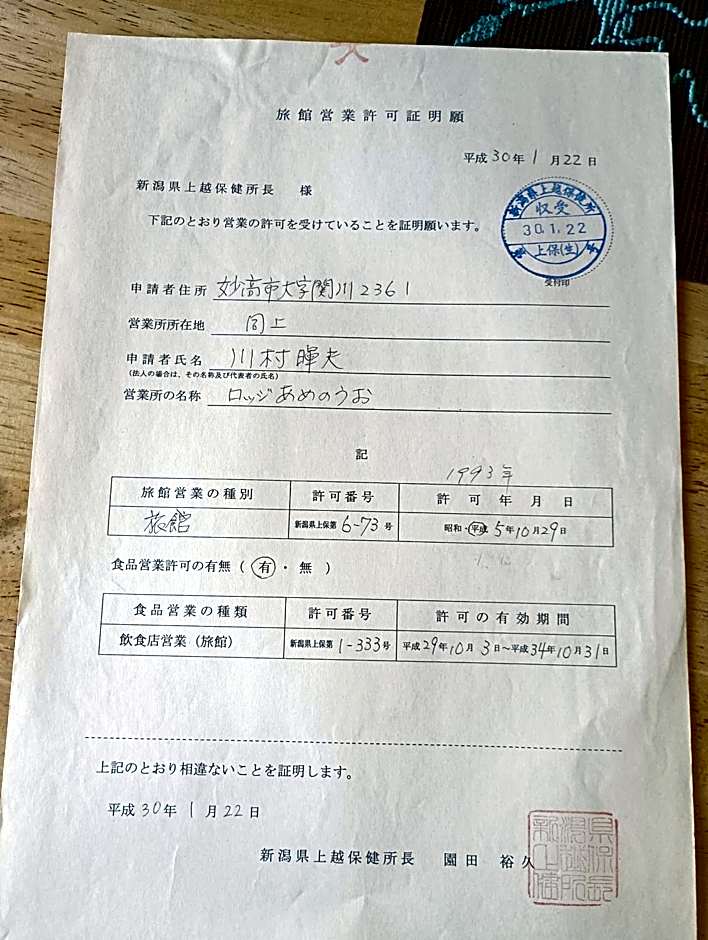 旅館営業許可証明願
平成30年1月22日
新潟県上越保健所長 様
下記のとおり営業の許可を受けていることを証明願います。
新潟県上越保健所
収受
30.1.22
上保(生)
受付印
申請者住所 妙高市大字関川2361
営業所所在地 同上
申請者氏名 川村暉夫
(法人の場合は、その名称及び代表者の氏名)
営業所の名称 ロッジあめのうお
記
1993年
旅館営業の種別 許可番号 許可年月日
旅館 新潟県上保第6-73号 昭和・平成5年10月29日
食品営業許可の有無(有・無)
食品営業の種類 許可番号 許可の有効期間
飲食店営業(旅館) 新潟県上保第1-333号 平成29年10月3日~平成34年10月31日
上記のとおり相違ないことを証明します。
平成30年1月22日
新潟県上越保健所長 園田 裕久
新潟県上越保健所長